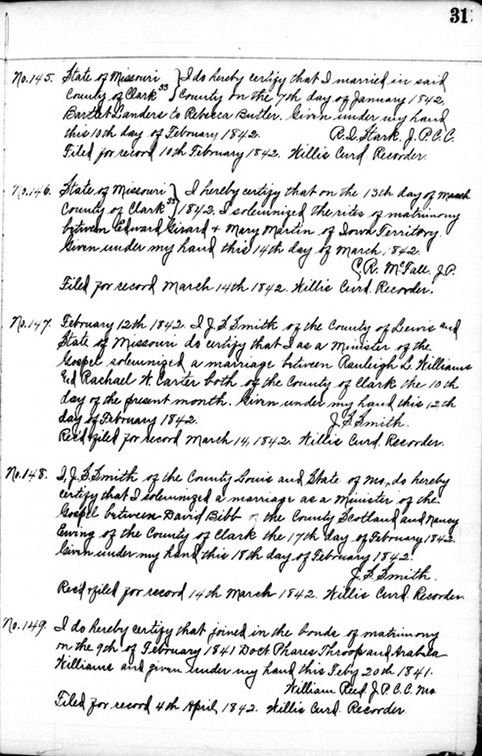 31
No. 145. State of Missouri } I do hereby certify that I married in said
County of Clark ss } County on the 7th day of January 1842,
Bartlet Landers to Rebeca Butler. Given under my hand
this 10th day of February 1842. R. I. Stark, J. P. C. C.
Filed for record 10th February 1842. Willis Curd. Recorder.
No. 146. State of Missouri } I hereby certify that on the 13th day of March
County of Clark ss } 1842. I solemnized the rites of matrimony
between Edward Girard + Mary Martin of Iowa Territory.
Given under my hand this 14th day of March, 1842.
C. R. McFall. J.P.
Filed for record March 14th 1842. Willis Curd. Recorder.
No. 147. February 12th 1842. I J. S. Smith of the County of Lewis and
State of Missouri do certify that I as a Minister of the
Gospel solemnized a marriage between Rauleigh L. Williams
and Rachael W. Carter both of the County of Clark the 10th
day of the present month. Given under my hand this 12th
day of February 1842. J. S. Smith.
Rec'd + filed for record March 14, 1842. Willis Curd. Recorder.
No. 148. I, J. S. Smith of the County Louis and State of Mo., do hereby
certify that I solemnized a marriage as a Minister of the
Gospel between David Bibb of the County Scotland and Nancy
Ewing of the County of Clark the 17th day of February 1842.
Given under my hand this 18th day of February 1842.
J. S. Smith.
Rec'd + filed for record 14th March 1842. Willis Curd. Recorder.
No. 149. I do hereby certify that joined in the bonds of matrimony
on the 9th of February 1841 Doct Phares Throop and Arabia
Williams and given under my hand this Feby 20th 1841.
William Reed J. P. C. C. Mo
Filed for record 4th April, 1842. Willis Curd. Recorder